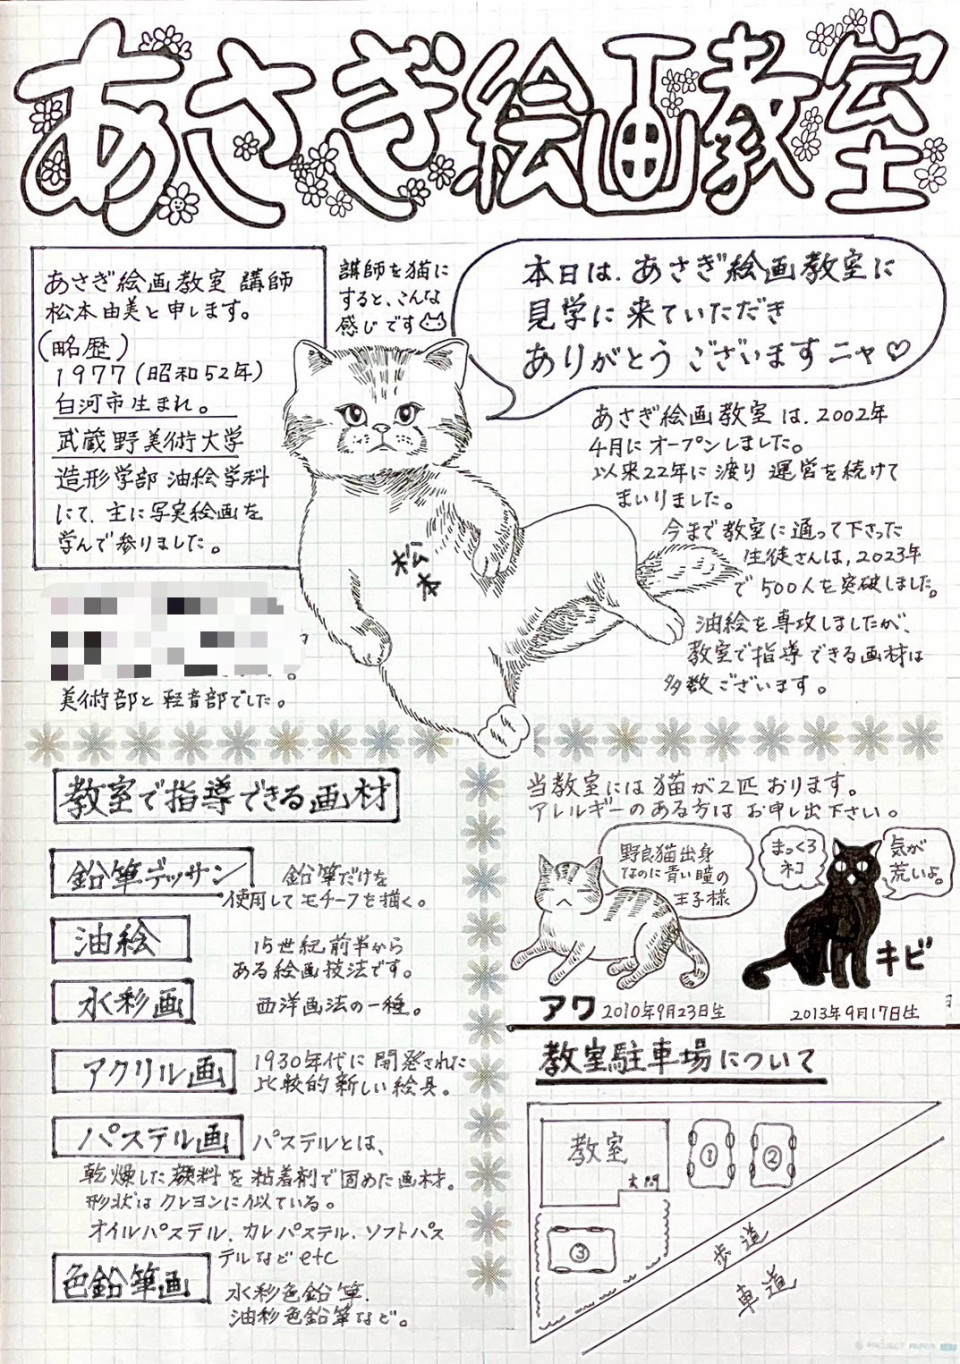 あさぎ絵画教室
あさぎ絵画教室 講師
松本由美と申します。
(略歴)
1977(昭和52年)
白河市生まれ。
武蔵野美術大学
造形学部 油絵学科
にて、主に写実絵画を
学んで参りました。
美術部と軽音部でした。
講師を猫に
すると、こんな
感じです
本日は、あさぎ絵画教室に
見学に来ていただき
ありがとうございますニャ♡
松本
あさぎ絵画教室は、2002年
4月にオープンしました。
以来22年に渡り運営を続けて
まいりました。
今まで教室に通って下さった
生徒さんは、2023年
で500人を突破しました。
油絵を専攻しましたが、
教室で指導できる画材は
多数ございます。
教室で指導できる画材
鉛筆デッサン
鉛筆だけを
使用してモチーフを描く。
油絵
15世紀前半から
ある絵画技法です。
水彩画
西洋画法の一種。
アクリル画
1930年代に開発された
比較的新しい絵具。
パステル画
パステルとは、
乾燥した顔料を粘着剤で固めた画材。
形状はクレヨンに似ている。
オイルパステル、カレパステル、ソフトパス
テルなどetc
色鉛筆画
水彩色鉛筆、
油彩色鉛筆など。
当教室には猫が2匹おります。
アレルギーのある方はお申し出下さい。
野良猫出身
なのに青い瞳の
王子様
アワ 2010年9月23日生
まっくろ
ネコ
気が
荒いよ。
キビ
2013年9月17日生
教室駐車場について
教室
玄関
①
②
③
歩道
車道
PROJECT PAPER